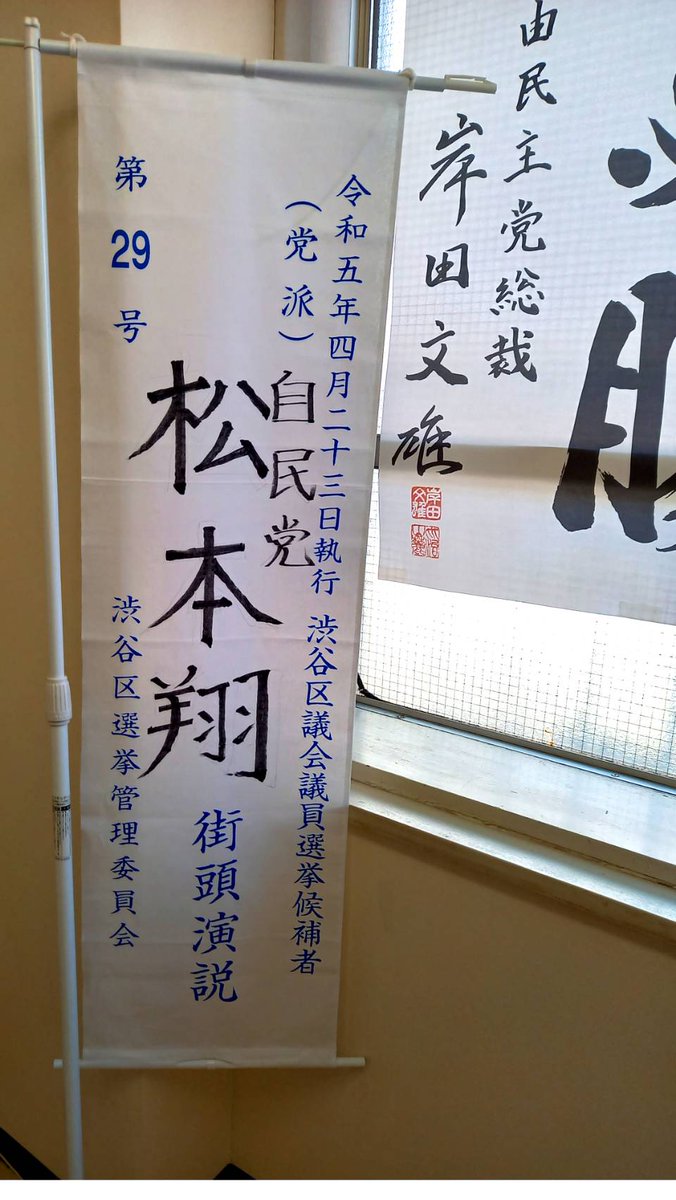 令和五年四月二十三日執行 渋谷区議会議員選挙候補者
（党派）自民党
松本翔 街頭演説
第29号
渋谷区選挙管理委員会
由民主党総裁
岸田文雄